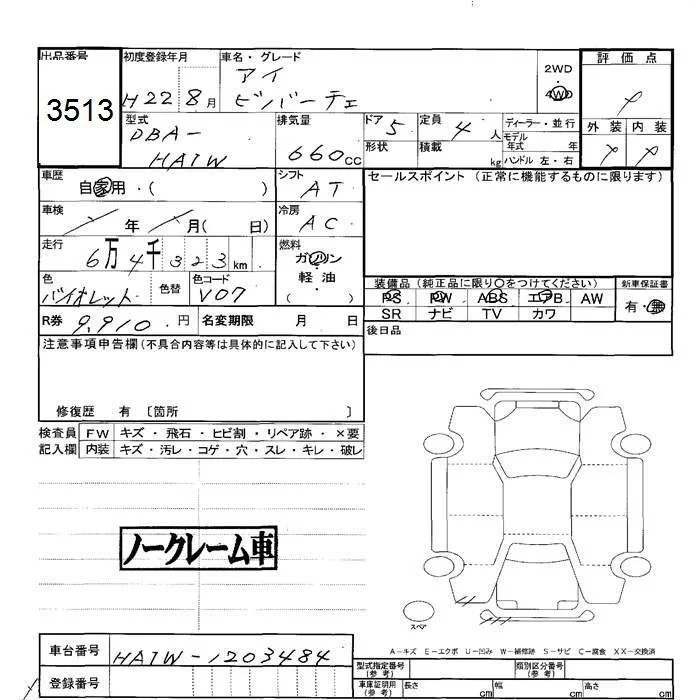 出品番号 初度登録年月 車名・グレード 評価点
3513 H22 8月 アイ ビバーチェ 2WD ・ 4WD
型式 排気量 ドア 定員 ディーラー・並行 外装 内装
DBA- 5 4人 モデル年式 年
HA1W 660cc 形状 積載 kg ハンドル 左・右
車歴 シフト セールスポイント (正常に機能するものに限ります)
自家用・( ) AT
車検 冷房
年 月( 日) AC
走行 燃料
6万4千323km ガソリン・軽油( )
色 色替 色コード 装備品 (純正品に限り〇をつけてください) 新車保証書
バイオレット V07 PS PW ABS エアB AW 有・無
R券 9,910.円 名変期限 月 日 SR ナビ TV カワ
注意事項申告欄(不具合内容等は具体的に記入して下さい) 後日品
修復歴 有 〔箇所 〕
検査員 FW キズ・飛石・ヒビ割・リペア跡・×要
記入欄 内装 キズ・汚レ・コゲ・穴・スレ・キレ・破レ
ノークレーム車
スペア
A−キズ E−エクボ U−凹み W−補修跡 S−サビ C−腐食 XX−交換済
車台番号 HA1W-1203484 型式指定番号(参考) 類別区分番号(参考)
登録番号 車庫証明用(参考) 長さ cm 幅 cm 高さ cm